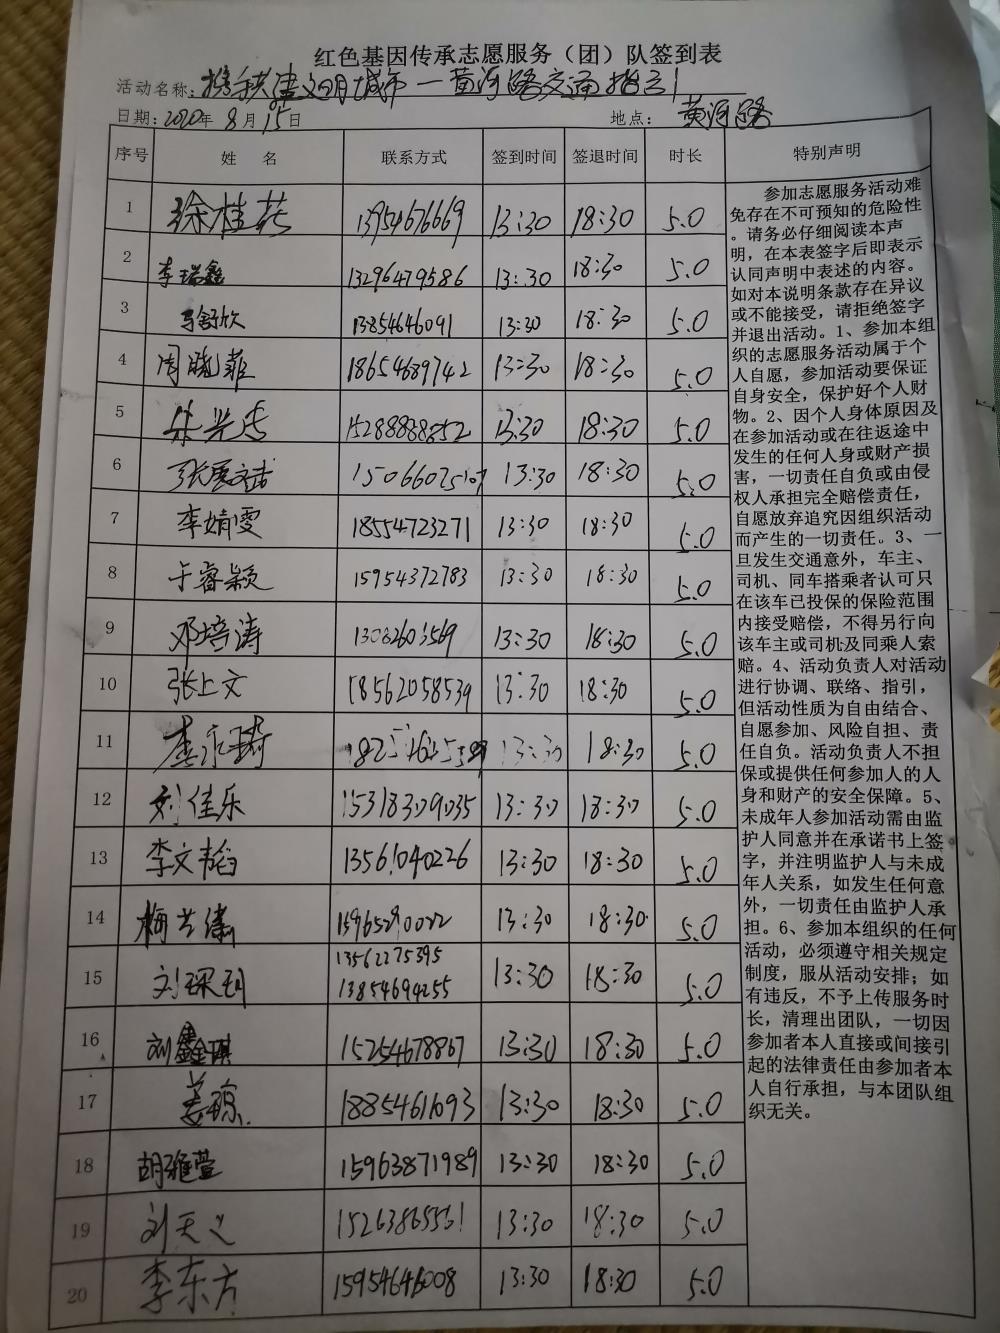 红色基因传承志愿服务（团）队签到表
活动名称：携手共建文明城市—黄河路交通指引
日期：2020年8月15日 地点：黄河路
序号 姓 名 联系方式 签到时间 签退时间 时长 特别声明
1 徐桂花 13954676669 13:30 18:30 5.0
2 李瑞鑫 13296479586 13:30 18:30 5.0
3 马舒欣 13854646091 13:30 18:30 5.0
4 周晓菲 18654689742 13:30 18:30 5.0
5 朱兴杰 15288888852 13:30 18:30 5.0
6 张展 13:30 18:30 5.0
7 李婧雯 18554723271 13:30 18:30 5.0
8 于睿颖 15954372783 13:30 18:30 5.0
9 邓培涛 13:30 18:30 5.0
10 张上文 18562058539 13:30 18:30 5.0
11 13:30 18:30 5.0
12 刘佳乐 15318309035 13:30 18:30 5.0
13 李文韬 13561040226 13:30 18:30 5.0
14 梅 13:30 18:30 5.0
15 刘琛玥 13562275395 13:30 18:30 5.0
13854694255
16 刘鑫琪 15254678867 13:30 18:30 5.0
17 姜琼 18854611093 13:30 18:30 5.0
18 胡雅萱 15963871989 13:30 18:30 5.0
19 刘天义 13:30 18:30 5.0
20 李东方 15954646008 13:30 18:30 5.0
参加志愿服务活动难
免存在不可预知的危险性
。请务必仔细阅读本声
明，在本表签字后即表示
认同声明中表述的内容。
如对本说明条款存在异议
或不能接受，请拒绝签字
并退出活动。1、参加本组
织的志愿服务活动属于个
人自愿，参加活动要保证
自身安全，保护好个人财
物。2、因个人身体原因及
在参加活动或在往返途中
发生的任何人身或财产损
害，一切责任自负或由侵
权人承担完全赔偿责任，
自愿放弃追究因组织活动
而产生的一切责任。3、一
旦发生交通意外，车主、
司机、同车搭乘者认可只
在该车已投保的保险范围
内接受赔偿，不得另行向
该车主或司机及同乘人索
赔。4、活动负责人对活动
进行协调、联络、指引，
但活动性质为自由结合、
自愿参加、风险自担、责
任自负。活动负责人不担
保或提供任何参加人的人
身和财产的安全保障。5、
未成年人参加活动需由监
护人同意并在承诺书上签
字，并注明监护人与未成
年人关系，如发生任何意
外，一切责任由监护人承
担。6、参加本组织的任何
活动，必须遵守相关规定
制度，服从活动安排；如
有违反，不予上传服务时
长，清理出团队，一切因
参加者本人直接或间接引
起的法律责任由参加者本
人自行承担，与本团队组
织无关。